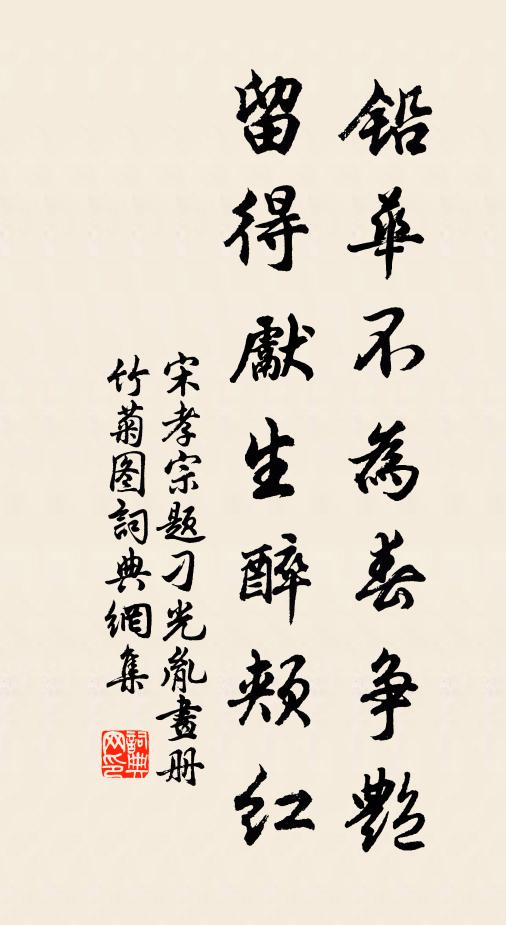 鉛華不為春争艷
留得獻生醉頰紅
宋孝宗題刁光胤畫册
竹菊图詞典網集
詞典
网印